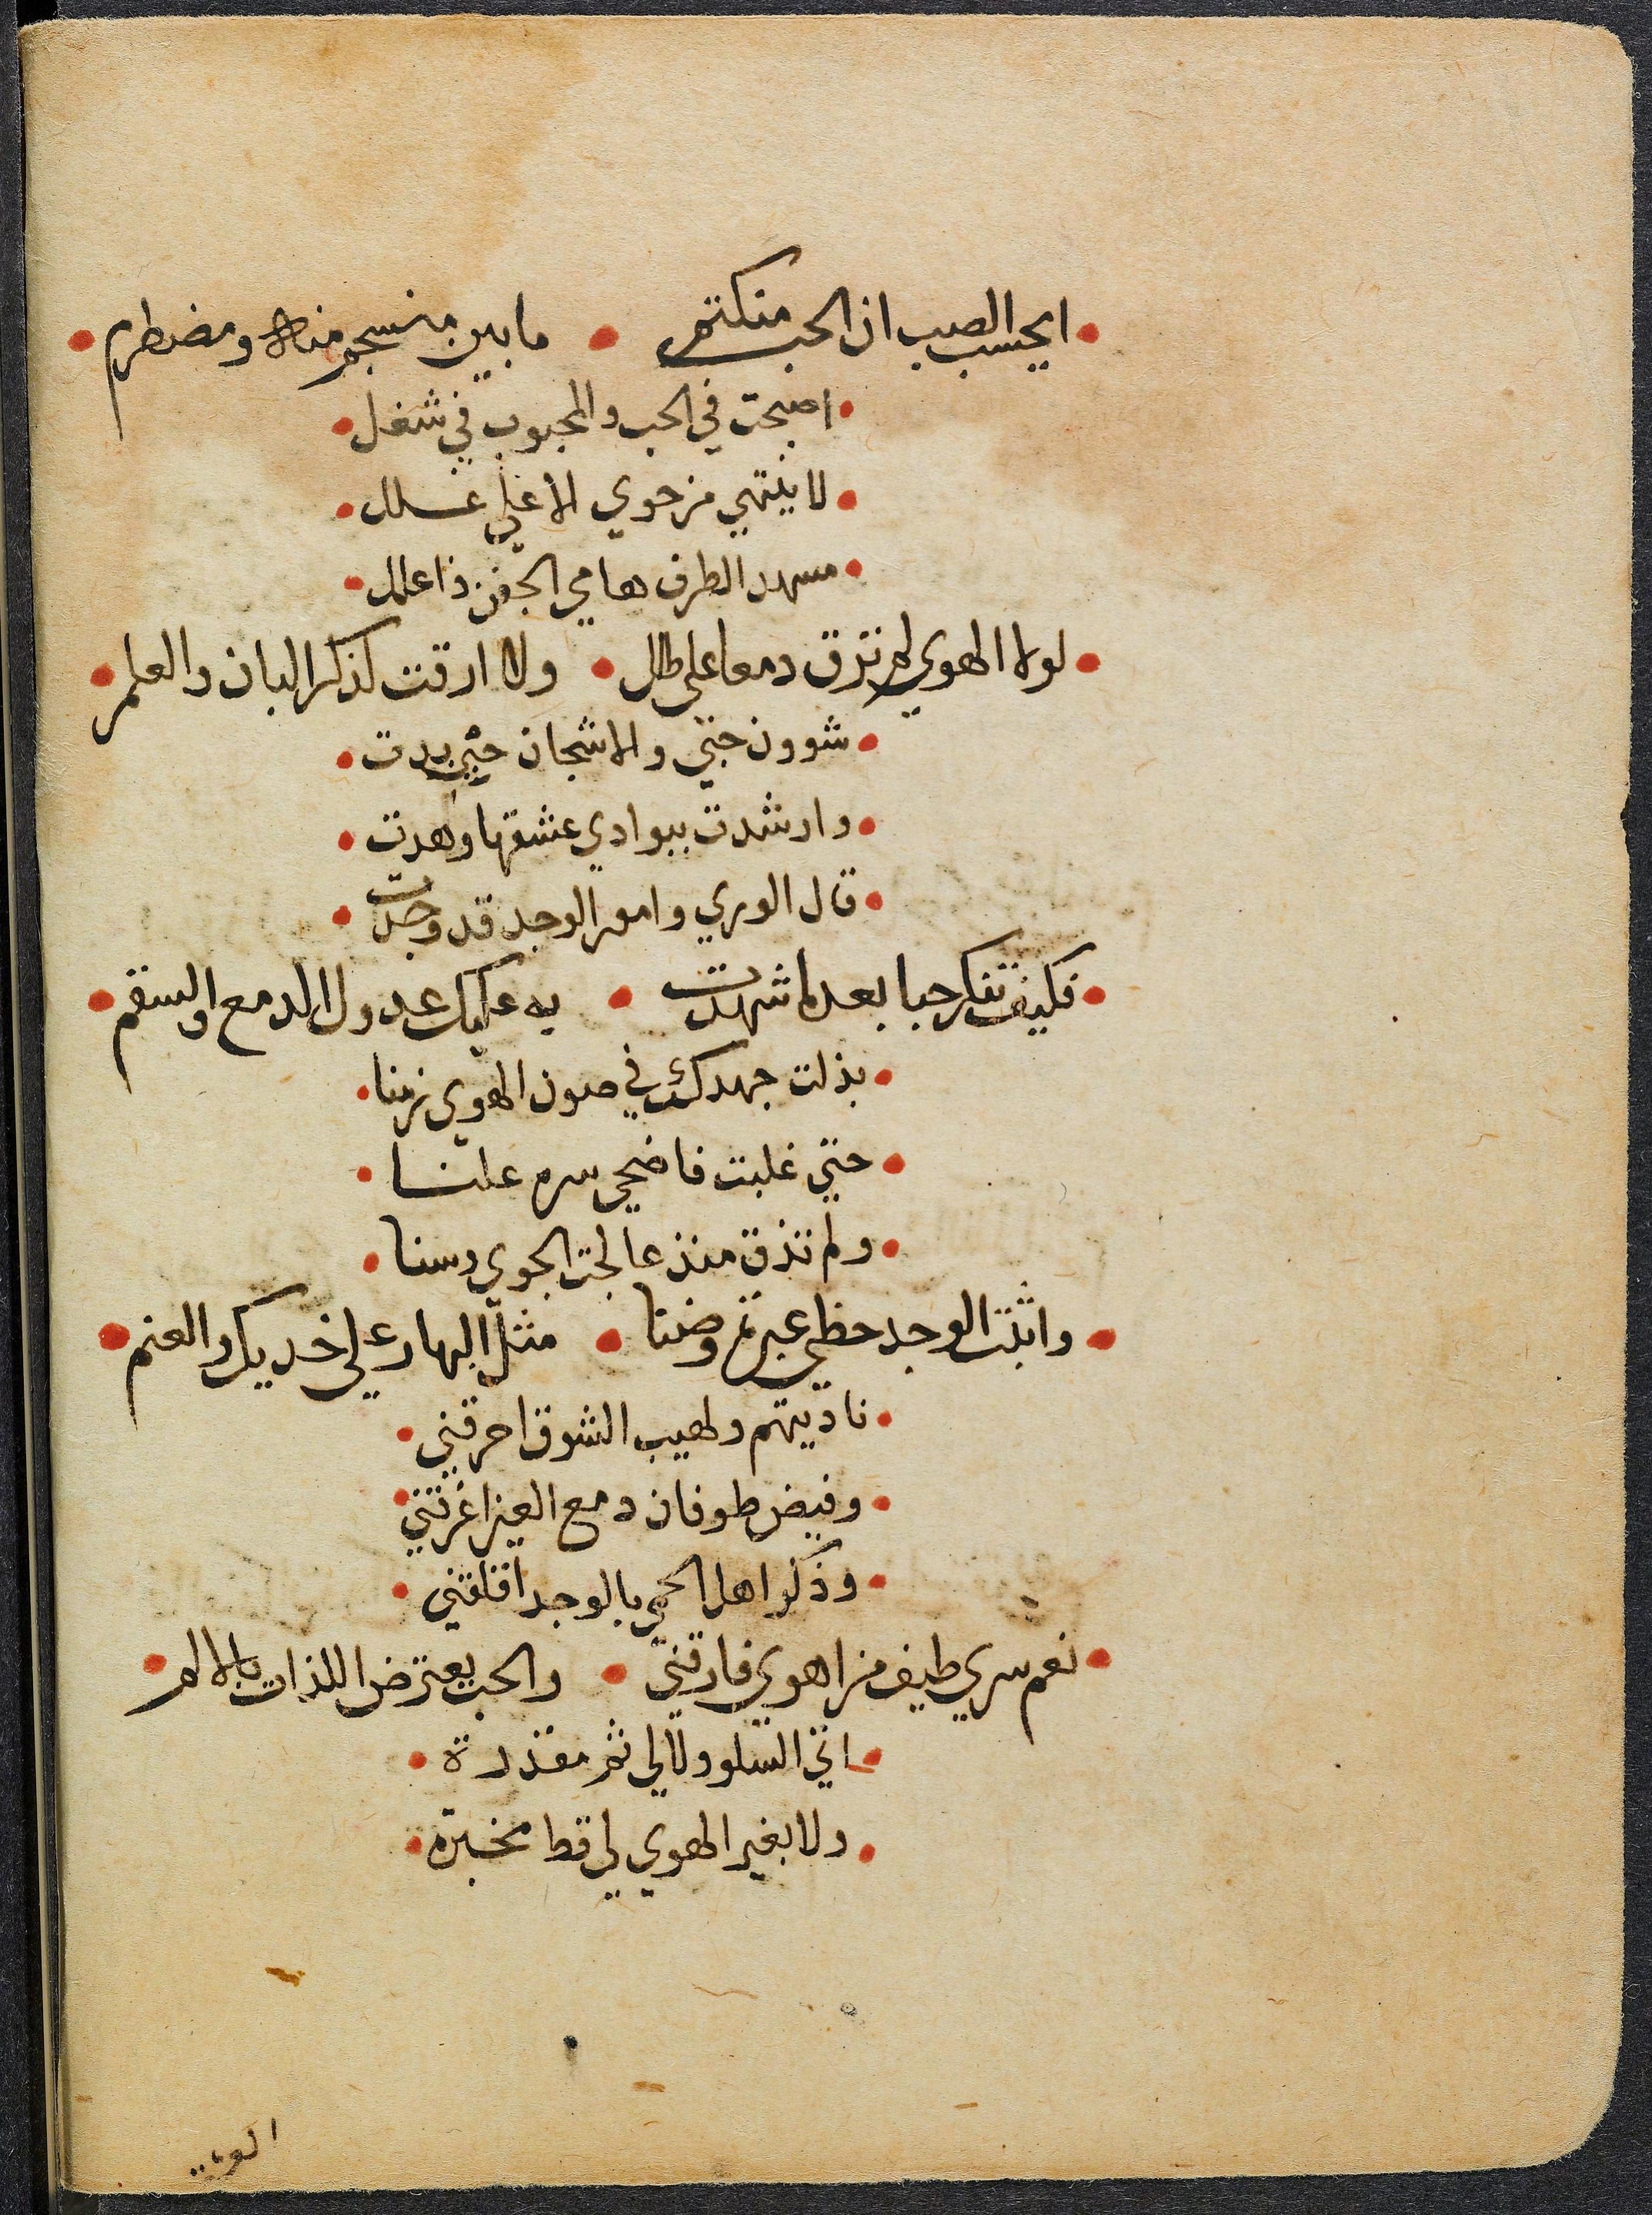 ايحسب الصب ان الحب منكتم • ما بين منسجم منه ومضطرم
اصبحت في الحب والمحبوب في شغل
لا ينتهي من حوي الا علي غلل
مسهد الطرف هامي الجفن ذا علل
لولا الهوي لم ترق دمعا علي طلل • ولا ارقت لذكر البان والعلم
شوون حبي والاشجان حين بدت
وارشدت ببوادي عشقها وهدت
قال الوري وامور الوجد قد وجدت
فكيف تنكر حبا بعد ما شهدت • به عليك عدول الدمع والسقم
بذلت جهدك في صون الهوي زمنا
حتي غلبت فاضحي سره علنا
ولم تذق منذ عالجت الجوي وسنا
واثبت الوجد خطي عبرة وضنا • مثل البهار علي خديك والعنم
ناديتهم ولهيب الشوق احرقني
وفيض طوفان دمع العين اغرقني
وذكر اهل الحمي بالوجد اقلقني
نعم سري طيف من اهوي فارقني • والحب يعترض اللذات بالالم
اني السلو ولا لي ثم مقدرة
ولا بغير الهوي لي قط مخبرة